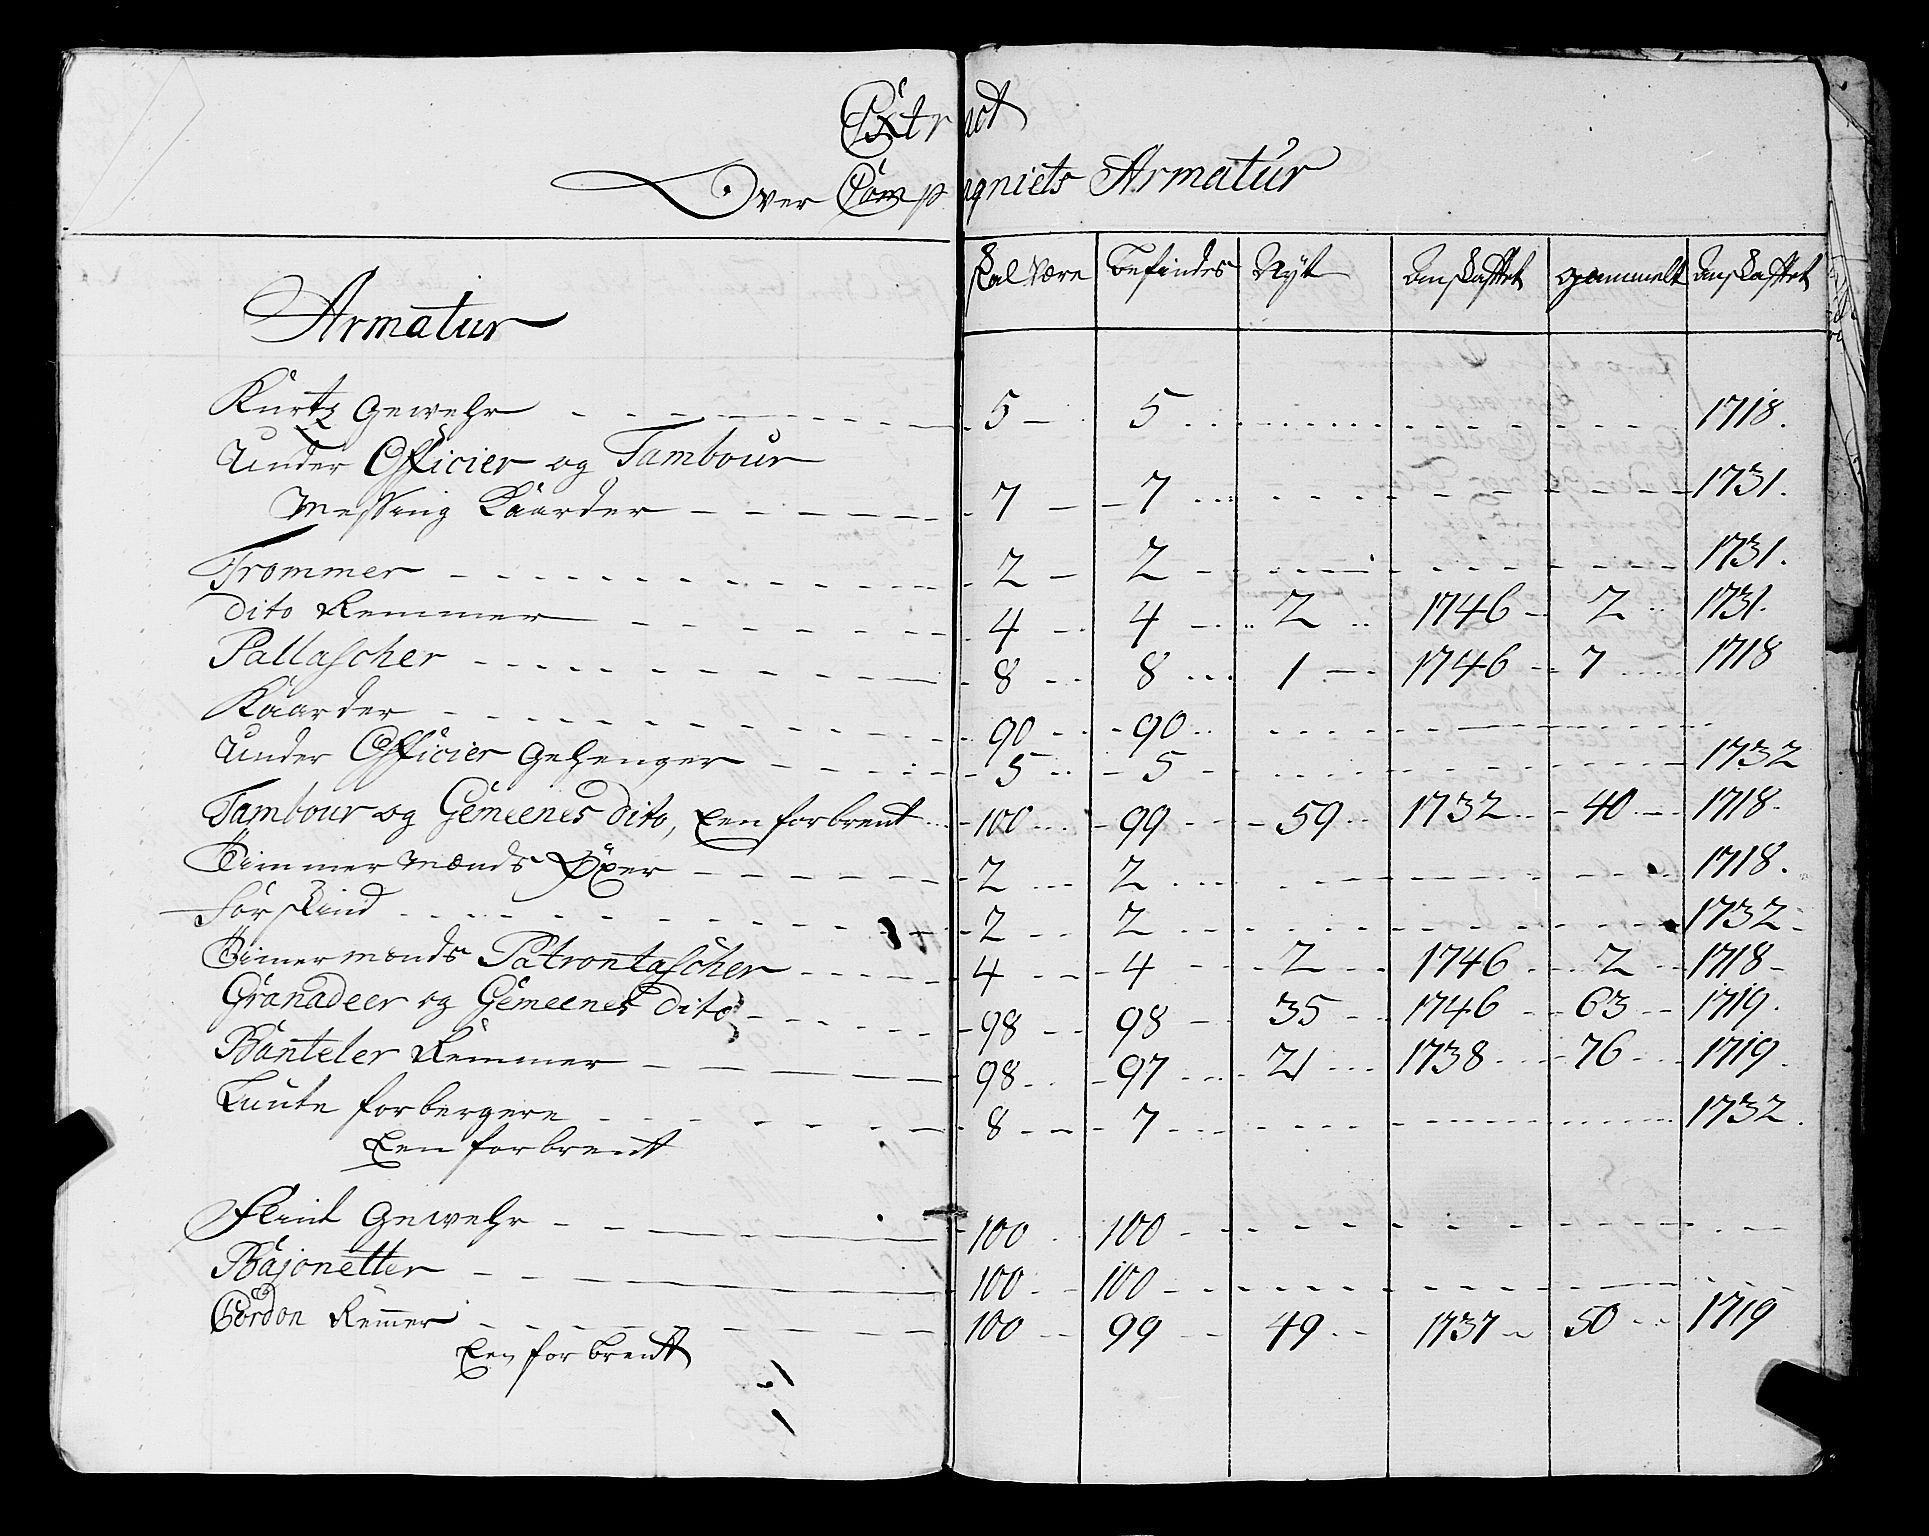 Extract
Over Compagniets Armatur
Armatur | Skal være | Befindes | Nÿt | Anskaffet | gammelt | Anskaffet
Kurtz Gewehr | 5 | 5 | | | | 1718.
Under Officier og Tambour
Messing Kaarder | 7 | 7 | | | | 1731.
Trommer | 2 | 2 | | | | 1731.
dito Remmer | 4 | 4 | 2 | 1746 | 2 | 1731.
Pallascher | 8 | 8 | 1 | 1746 | 7 | 1718
Kaarder | 90 | 90
Under Officier Gehenger | 5 | 5 | | | | 1732
Tambour og Gemeenes dito, Een forbrent | 100 | 99 | 59 | 1732 | 40 | 1718.
Timmer Mænds Øxer | 2 | 2 | | | | 1718.
Forskind | 2 | 2 | | | | 1732
Timermænds Patrontascher | 4 | 4 | 2 | 1746 | 2 | 1718
Granadeer og Gemeenes dito | 98 | 98 | 35 | 1746 | 63 | 1719.
Banteler Remmer | 98 | 97 | 21 | 1738 | 76 | 1719
Lunte forbergere | 8 | 7 | | | | 1732.
Een forbrent
Flint Gewehr | 100 | 100
Bajonetter | 100 | 100
Cordon Remer | 100 | 99 | 49 | 1737 | 50 | 1719
Een forbrent